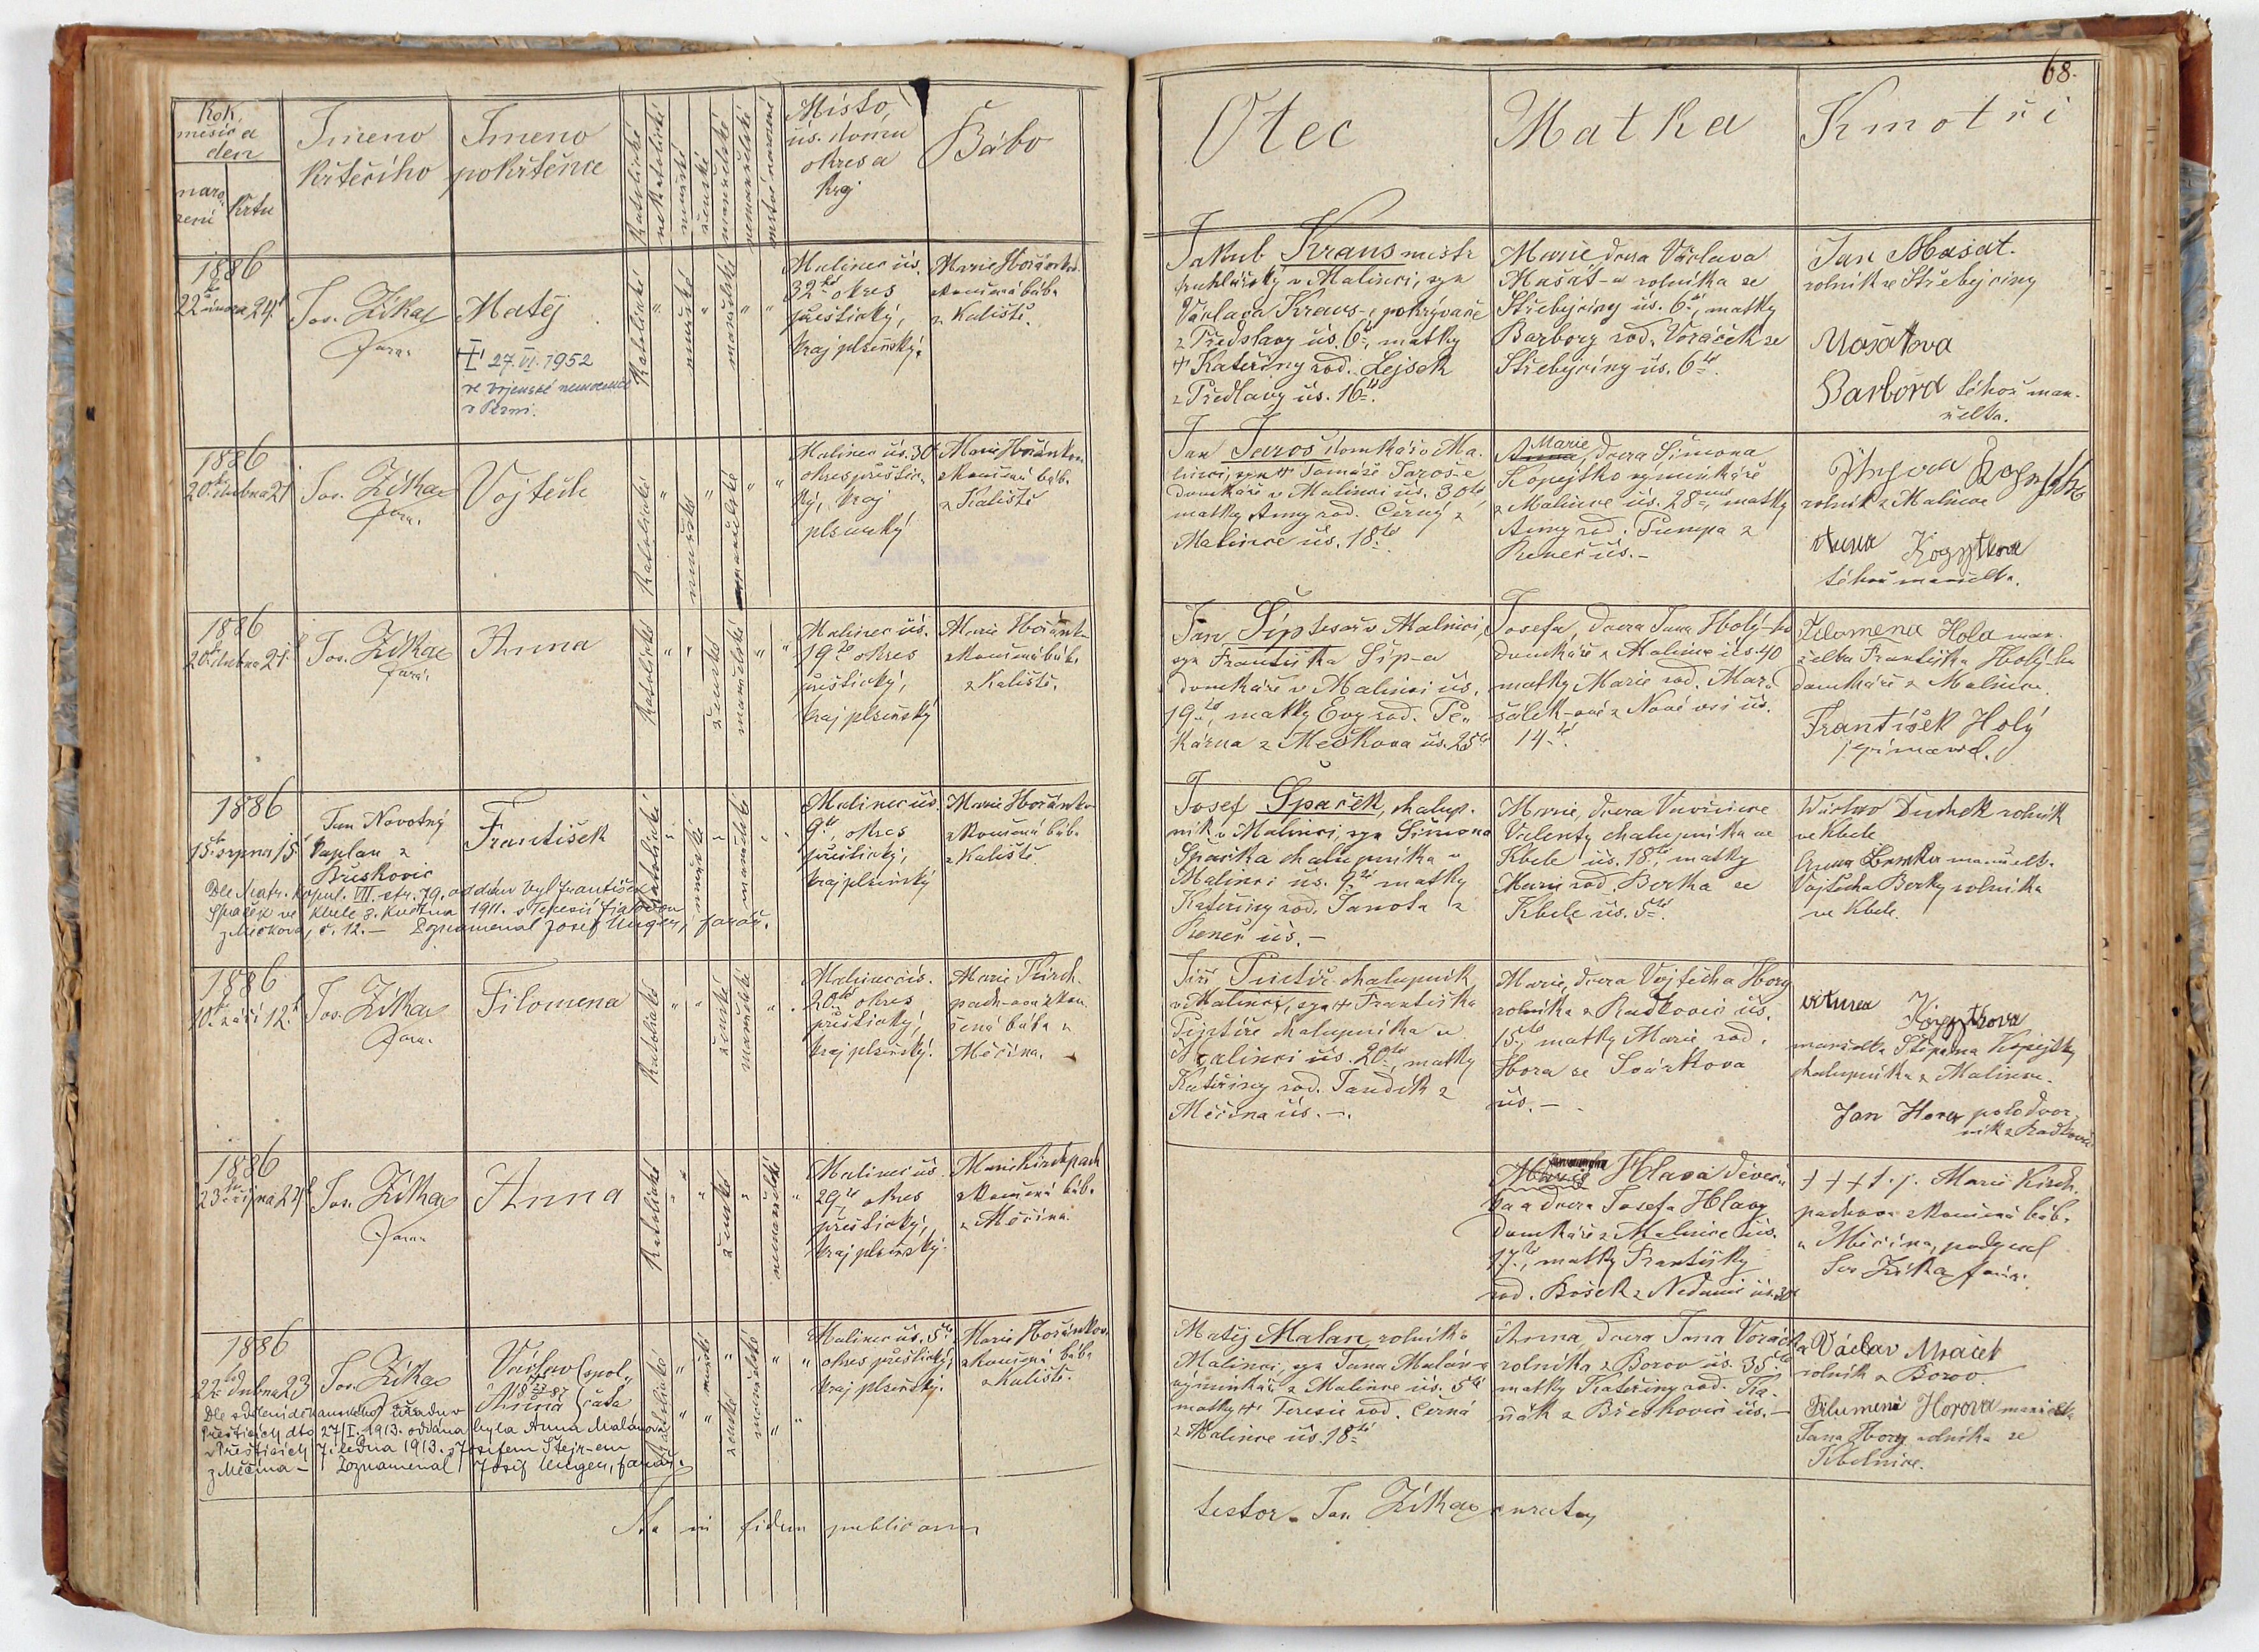 68.
Rok,
měsíc a
den
naro-
zení
křtu
Jmeno
křtícího
Jmeno
pokřtěnce
Katolické
nekatolické
mužské
ženské
manželské
nemanželské
mrtvě narozené
Místo,
čís. domu
okres a
kraj
Bába
Otec
Matka
Kmotři
1886
22 února 24.
Jos. Zíka
farář
Matěj
27. VI. 1952
ve vojenské nemocnici
v Plzni.
Katolické
mužské
manželské
Malinec čís.
32 okres
přeštický,
kraj plzeňský.
Marie
zkoušená bába
z Kaliště.
Jakub Kraus mistr
truhlářský v Malinci, syn
Václava Kraus-e, pokrývače
z Předslavy čís. 6, matky
Kateřiny rod. Lejsek
z Předlavy čís. 16.
Marie dcera Václava
Mašát-a rolníka ze
Střebyčiny čís. 6, matky
Barbory rod. Voráček ze
Střebyčiny čís. 6.
Jan Mašat.
rolník ze Střebyčiny
Mašatova
Barbora téhož man-
želka.
1886
20. dubna 21
Jos. Zíka
farář
Vojtěch
Katolické
mužské
manželské
Malinec čís. 30
okres přeštic-
ký, kraj
plzenský
Marie
zkoušená bába
z Kaliště
Jan Jaroš domkář v Ma-
linci, syn Tomáše Jaroše
domkáře v Malinci čís. 30,
matky Anny rod. Černý z
Malince čís. 18.
Marie
Anna, dcera Šimona
Kopejtko výminkáře
z Malince čís. 28, matky
Anny rod. Pumpa z
Řenče čís. -
rolník z Malince
Anna Kopytkova
téhož manželka.
1886
20. dubna 21.
Jos. Zíka
farář
Anna
Katolické
ženské
manželské
Malinec čís.
19 okres
přeštický,
kraj plzeňský
Marie
zkoušená bába
z Kaliště.
Jan Šíp tesař v Malinci,
syn Františka Šíp-a
domkáře v Malinci čís.
19, matky Evy rod. Pe-
kárna z Mečkova čís. 25
Josefa, dcera Jana Holý-ho
domkáře z Malince čís. 40
matky Marie rod. Mar-
šálek-ové z Nové vsi čís.
14.
Filomena Hola man-
želka Františka Holý-ho
domkáře z Malince.
František Holý
1886
15. srpna 15.
Jan Novotný
kaplan z
Břeskovic
František
Katolické
mužské
manželské
Malinec čís.
9, okres
přeštický,
kraj plzeňský
Marie
zkoušená bába
z Kaliště
Dle Matr. kopul. VII. str. 79. oddán byl František
Špaček ve Kbele 3. května 1911. s Terezií
z Mečkova, č. 12. - Zaznamenal Josef Unger, farář.
Josef Špaček, chalup-
ník v Malinci, syn Šimona
Špačka chalupníka v
Malinci čís. 9 matky
Kateřiny rod. Janota z
Řenče čís. -
Marie, dcera Vavřince
Valenty chalupníka ve
Kbele čís. 18, matky
Marie rod. Berka ze
Kbele čís. 5.
Duchek rolník
ve Kbele
Anna manželka
Vojtěcha Berky rolníka
ve Kbele.
1886
10. září 12.
Jos. Zíka
farář
Filomena
Katolické
ženské
manželské
Malinec čís.
20 okres
přeštický,
kraj plzeňský.
Marie Kirch-
pach-ova zkou-
šená bába z
Měčína.
Jiří chalupník
v Malinci, syn Františka
chalupníka v
Malinci čís. 20, matky
Kateřiny rod. Jandík z
Měčína čís. -.
Marie, dcera Vojtěcha Hory
rolníka z Radkovic čís.
15, matky Marie rod.
Hora ze Svárkova
čís. -
Anna Kopytkova
manželka Štěpána Kopejtky
chalupníka z Malince.
Jan Hora polodvor-
ník z Radkovic
1886
23. října 24.
Jos. Zíka
farář
Anna
Katolické
ženské
nemanželské
Malinec čís.
29, okres
přeštický,
kraj plzeňský.
Marie Kirchpach
zkoušená bába
z Měčína.
Marie Hlava děveč-
ka a dcera Josefa Hlavy
domkáře z Malince čís.
17, matky Františky
rod. Bošek z Nedanic čís.
+++ Marie Kirch-
pachova zkoušená bába
z Měčína, podepsal
Jos Zíka farář.
1886
22. dubna 23
Jos. Zíka
farář
Václav (spol.
Anna (čata
Katolické
mužské
ženské
manželské
Malinec čís. 5
okres přeštický,
kraj plzeňský.
Marie
zkoušená bába
z Kaliště.
Dle sdělení děkanského úřadu v
Přešticích dto 27/I. 1913. oddána byla Anna Malanová
v Přešticích 7. ledna 1913. s Josefem Štejr-em
z Měčína - Zaznamenal Josef Unger, farář.
Matěj Malan, rolník v
Malinci, syn Jana Malán-a
výminkáře z Malince čís. 5
matky Terezie rod. Černá
z Malince čís. 18
Anna, dcera Jana Voráčka
rolníka z Borov čís. 35
matky Kateřiny rod. Ka-
ňák z Břeskovic čís. -
Václav
rolník z Borov.
Filumena Horova manželka
Jana Hory rolníka ze
Kbelnice.
Ita in fidem publicam
testor. Jan Zíka curatus